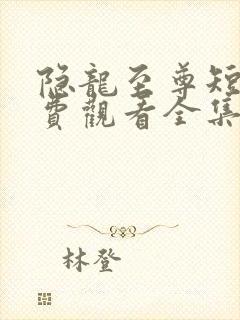 隐龍至尊短
費觀看全集
林登